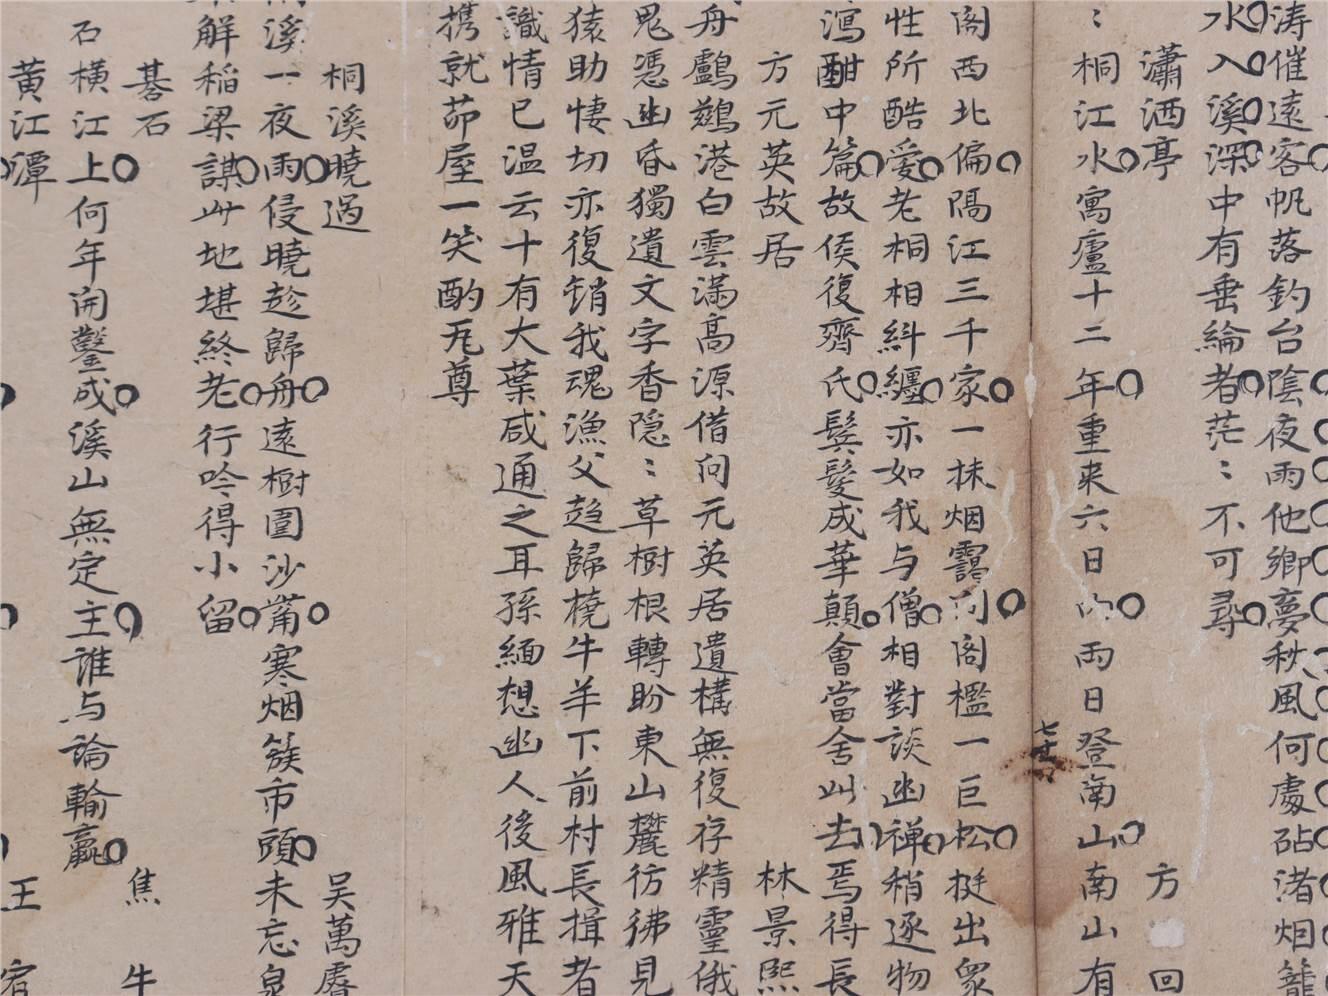 涛催遠客帆落釣台陰夜雨他鄉夢秋風何處砧渚烟籠
水入溪深中有垂綸者茫：不可尋
瀟洒亭 方回
：桐江水寓廬十二年重来六日雨日登南山南山有
閣西北偏隔江三千家一抹烟靄間閣檻一巨松挺出眾
性所酷愛老桐相糾纏亦如我与僧相對談幽禪稍逐物
瀉酣中篇故侯復齊氏鬂髮成華顛會當舍此去焉得長
方元英故居 林景熙
舟鸕鷀港白雲滿高源借问元英居遺構無復存精靈俄
鬼憑幽昏獨遺文字香隐：草樹根轉盼東山麓彷彿見
猿助悽切亦復销我魂漁父趋歸橈牛羊下前村長揖者
識情已温云十有大葉咸通之耳孫緬想幽人後風雅天
携就茆屋一笑酌瓦尊
桐溪曉過 吴萬
溪一夜雨侵曉趁歸舟遠樹圍沙觜寒烟簇市頭未忘泉
解稻梁謀此地堪終老行吟得小留
碁石 焦 牛
石横江上何年開鑿成溪山無定主誰与論輸贏
黄江潭 王